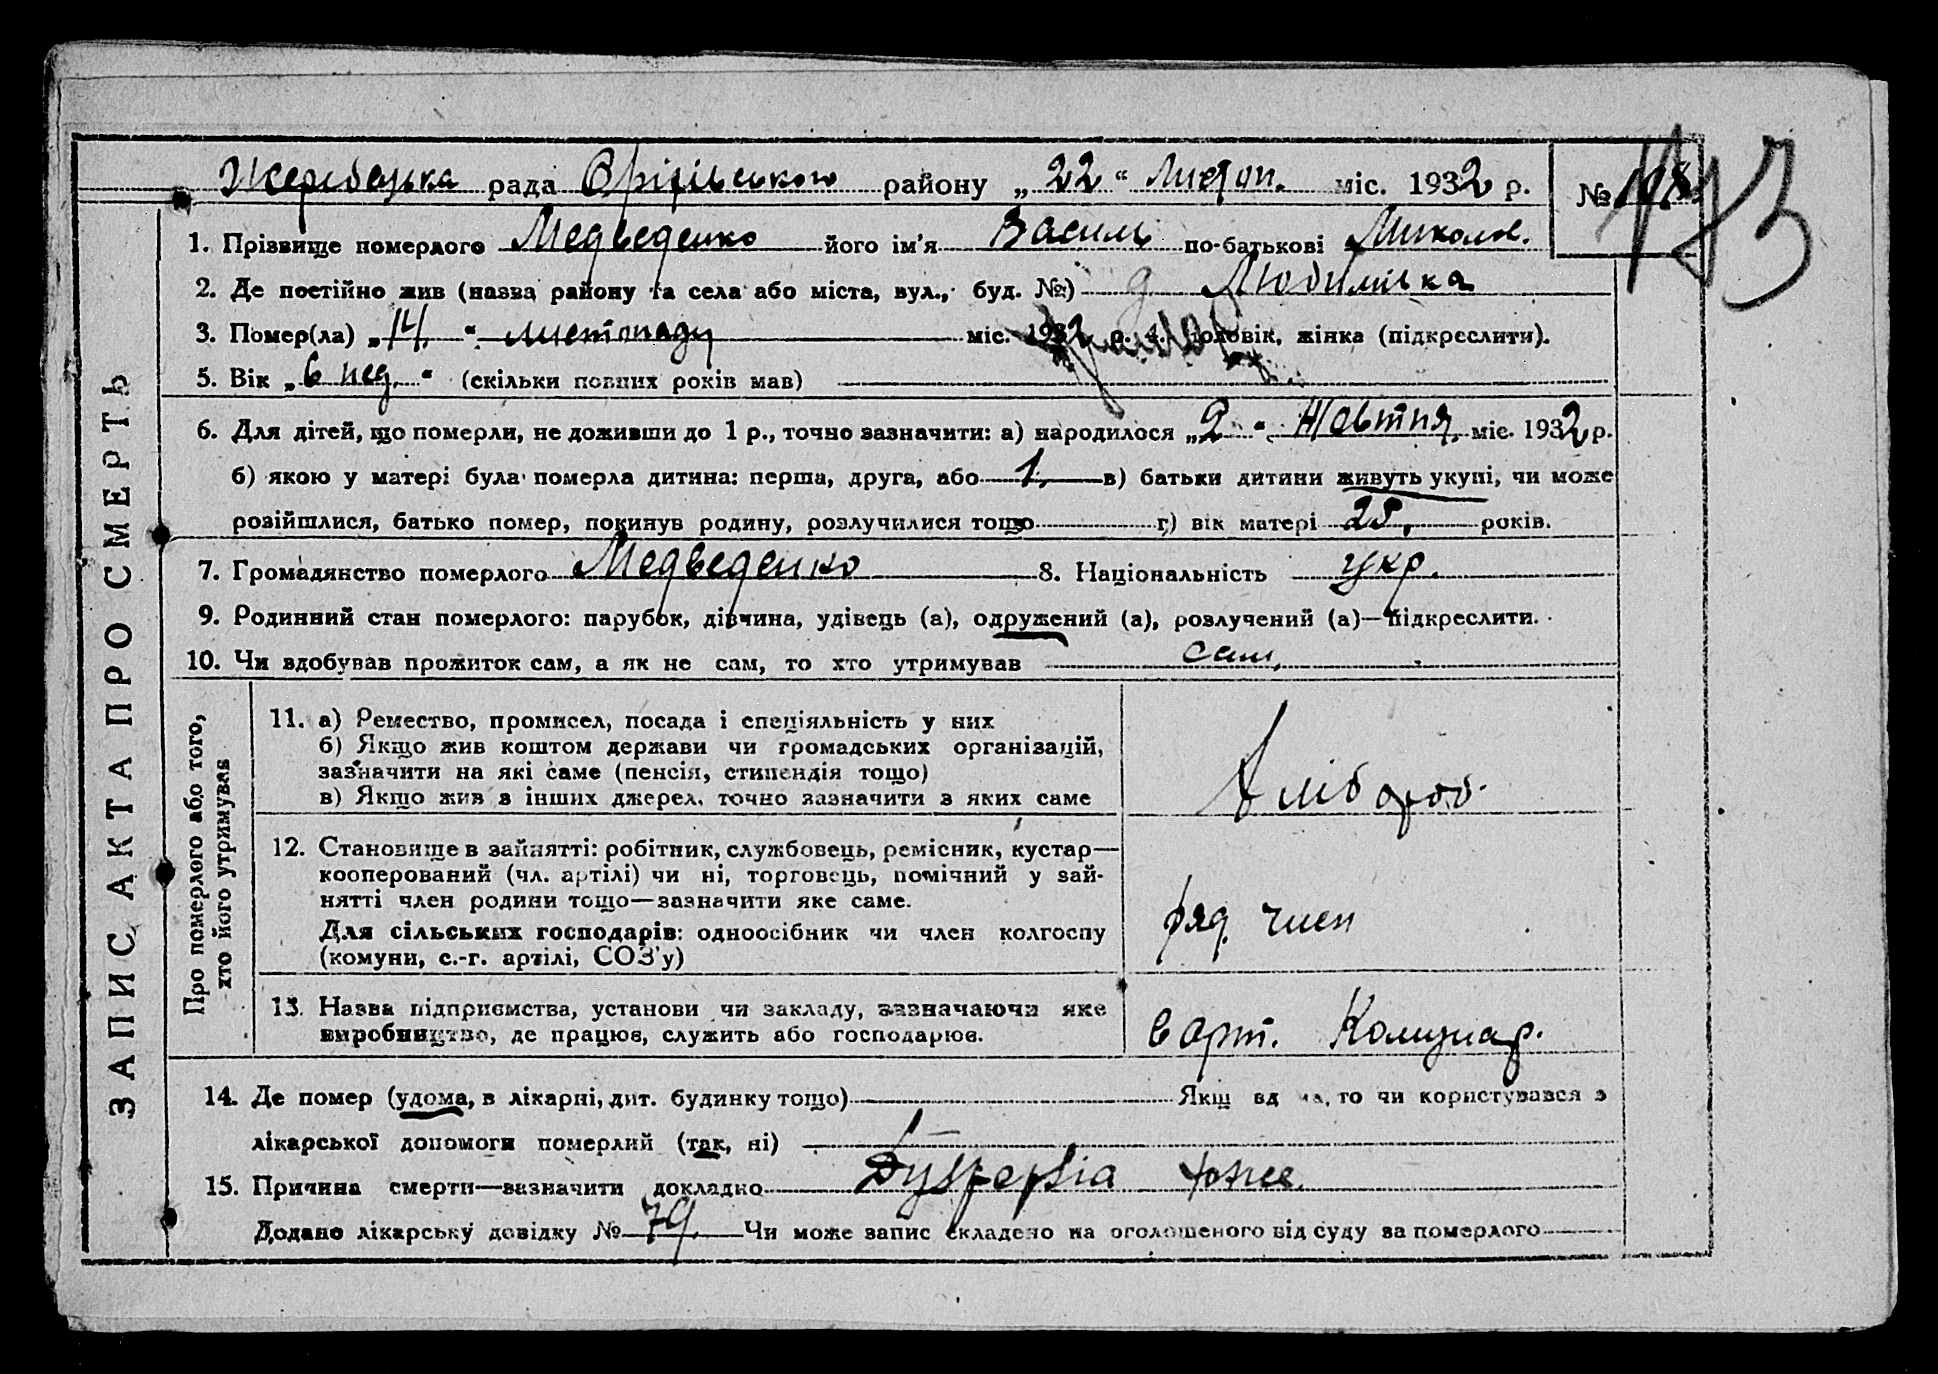 Жеребецька рада Оріхівського району „22“ Листоп. міс. 1932 р.
№
113
1. Прізвище померлого Медведенко його ім'я Василь по-батькові Миколов.
2. Де постійно жив (назва району та села або міста, вул., буд. №) д Любимівка
3. Помер(ла) „14“ листопаду міс. 1932 р. 4. Чоловік, жінка (підкреслити).
5. Вік „6 нед.“ (скільки повних років мав)
6. Для дітей, що померли, не доживши до 1 р., точно зазначити: а) народилося „2“ Жовтня міс. 1932 р.
б) якою у матері була померла дитина: перша, друга, або 1, в) батьки дитини живуть укупі, чи може
розійшлися, батько помер, покинув родину, розлучилися тощо г) вік матері 25, років.
7. Громадянство померлого Медведенко 8. Національність укр.
9. Родинний стан померлого: парубок, дівчина, удівець (а), одружений (а), розлучений (а)—підкреслити.
10. Чи здобував прожиток сам, а як не сам, то хто утримував сам,
ЗАПИС АКТА ПРО СМЕРТЬ
Про померлого або того,
хто його утримував
11. а) Ремество, промисел, посада і спеціяльність у них
б) Якщо жив коштом держави чи громадських організацій,
зазначити на які саме (пенсія, стипендія тощо)
в) Якщо жив з інших джерел, точно зазначити з яких саме
хлібороб.
12. Становище в зайнятті: робітник, службовець, ремісник, кустар—
кооперований (чл. артілі) чи ні, торговець, помічний у зай-
нятті член родини тощо—зазначити яке саме.
Для сільських господарів: одноосібник чи член колгоспу
(комуни, с.-г. артілі, СОЗ'у)
ряд. член
13. Назва підприємства, установи чи закладу, зазначаючи яке
виробництво, де працює, служить або господарює.
в арт. Комунар.
14. Де помер (удома, в лікарні, дит. будинку тощо) Якщо вдома, то чи користувався з
лікарської допомоги померлий (так, ні)
15. Причина смерти—зазначити докладно Dyspepsia
Додано лікарську довідку № 79. Чи може запис складено на оголошеного від суду за померлого